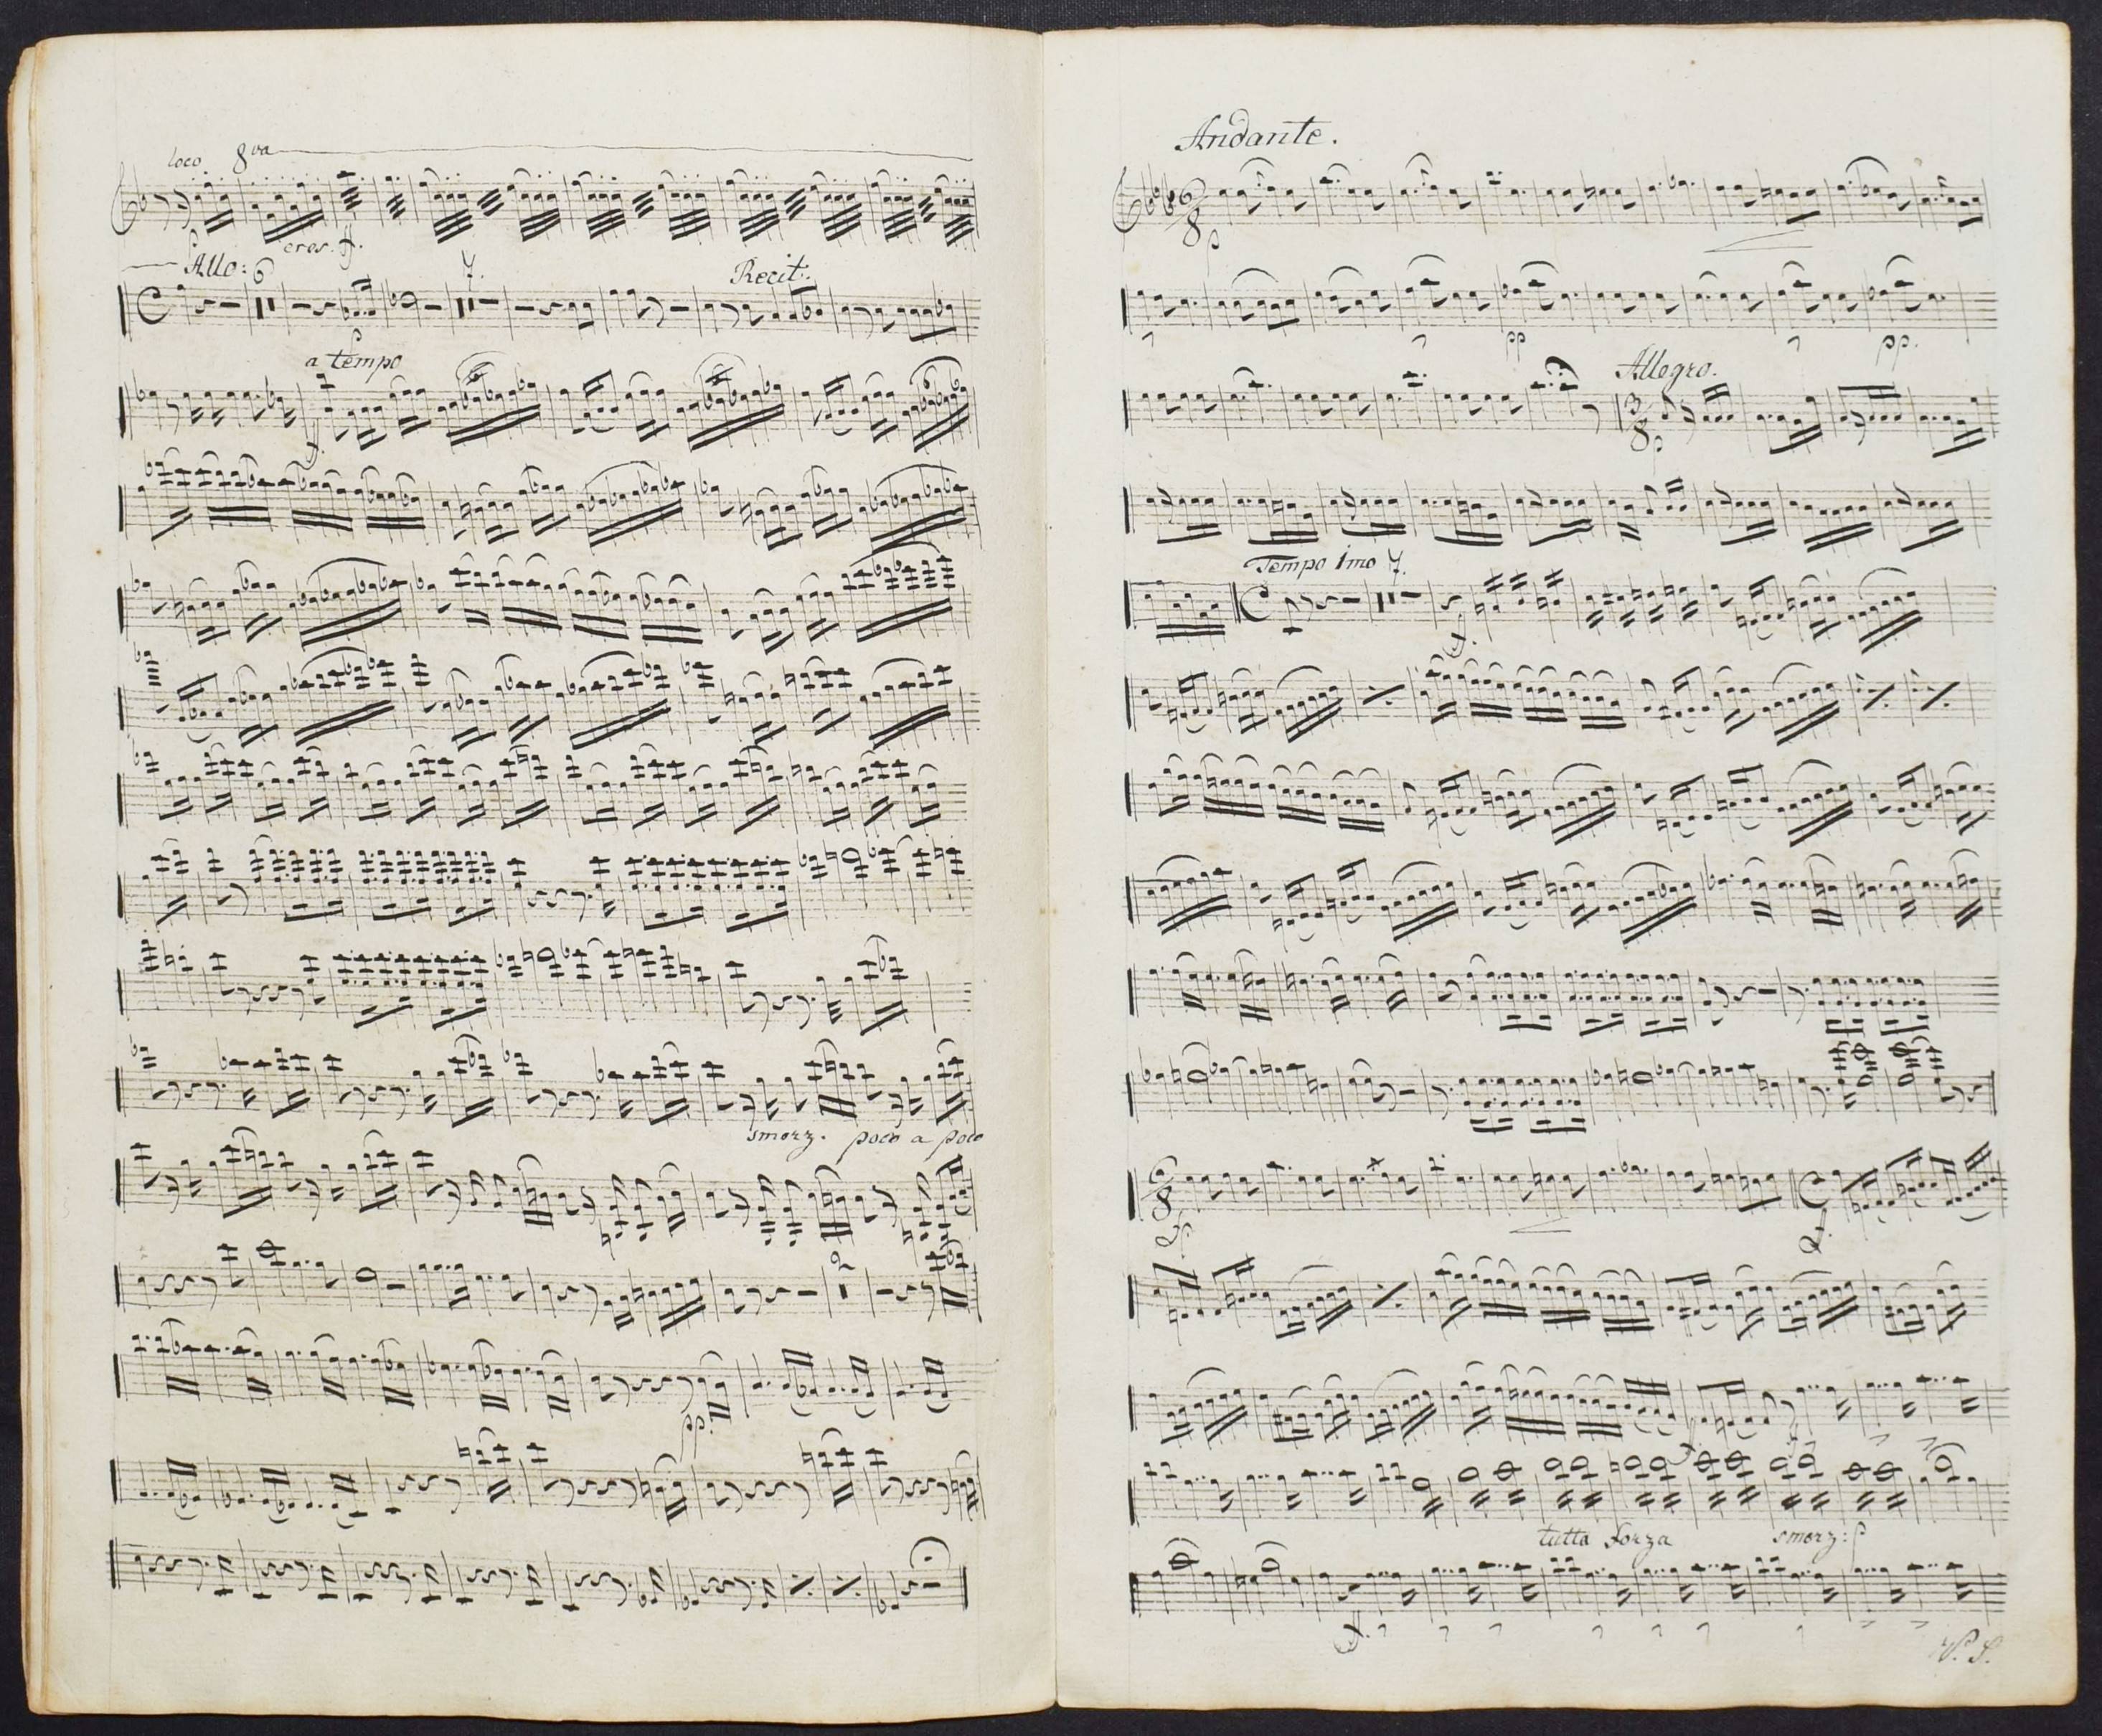 loco 8va
cres. ff.
Allo: 6 7. Recit:
p
a tempo
ff.
smorz. poco a poco
2
pp.
Andante.
6/8 p
pp pp.
Allegro.
3/8 p
Tempo 1mo 7.
ff.
6/8
tutta forza smorz: p
ff.
V. S.